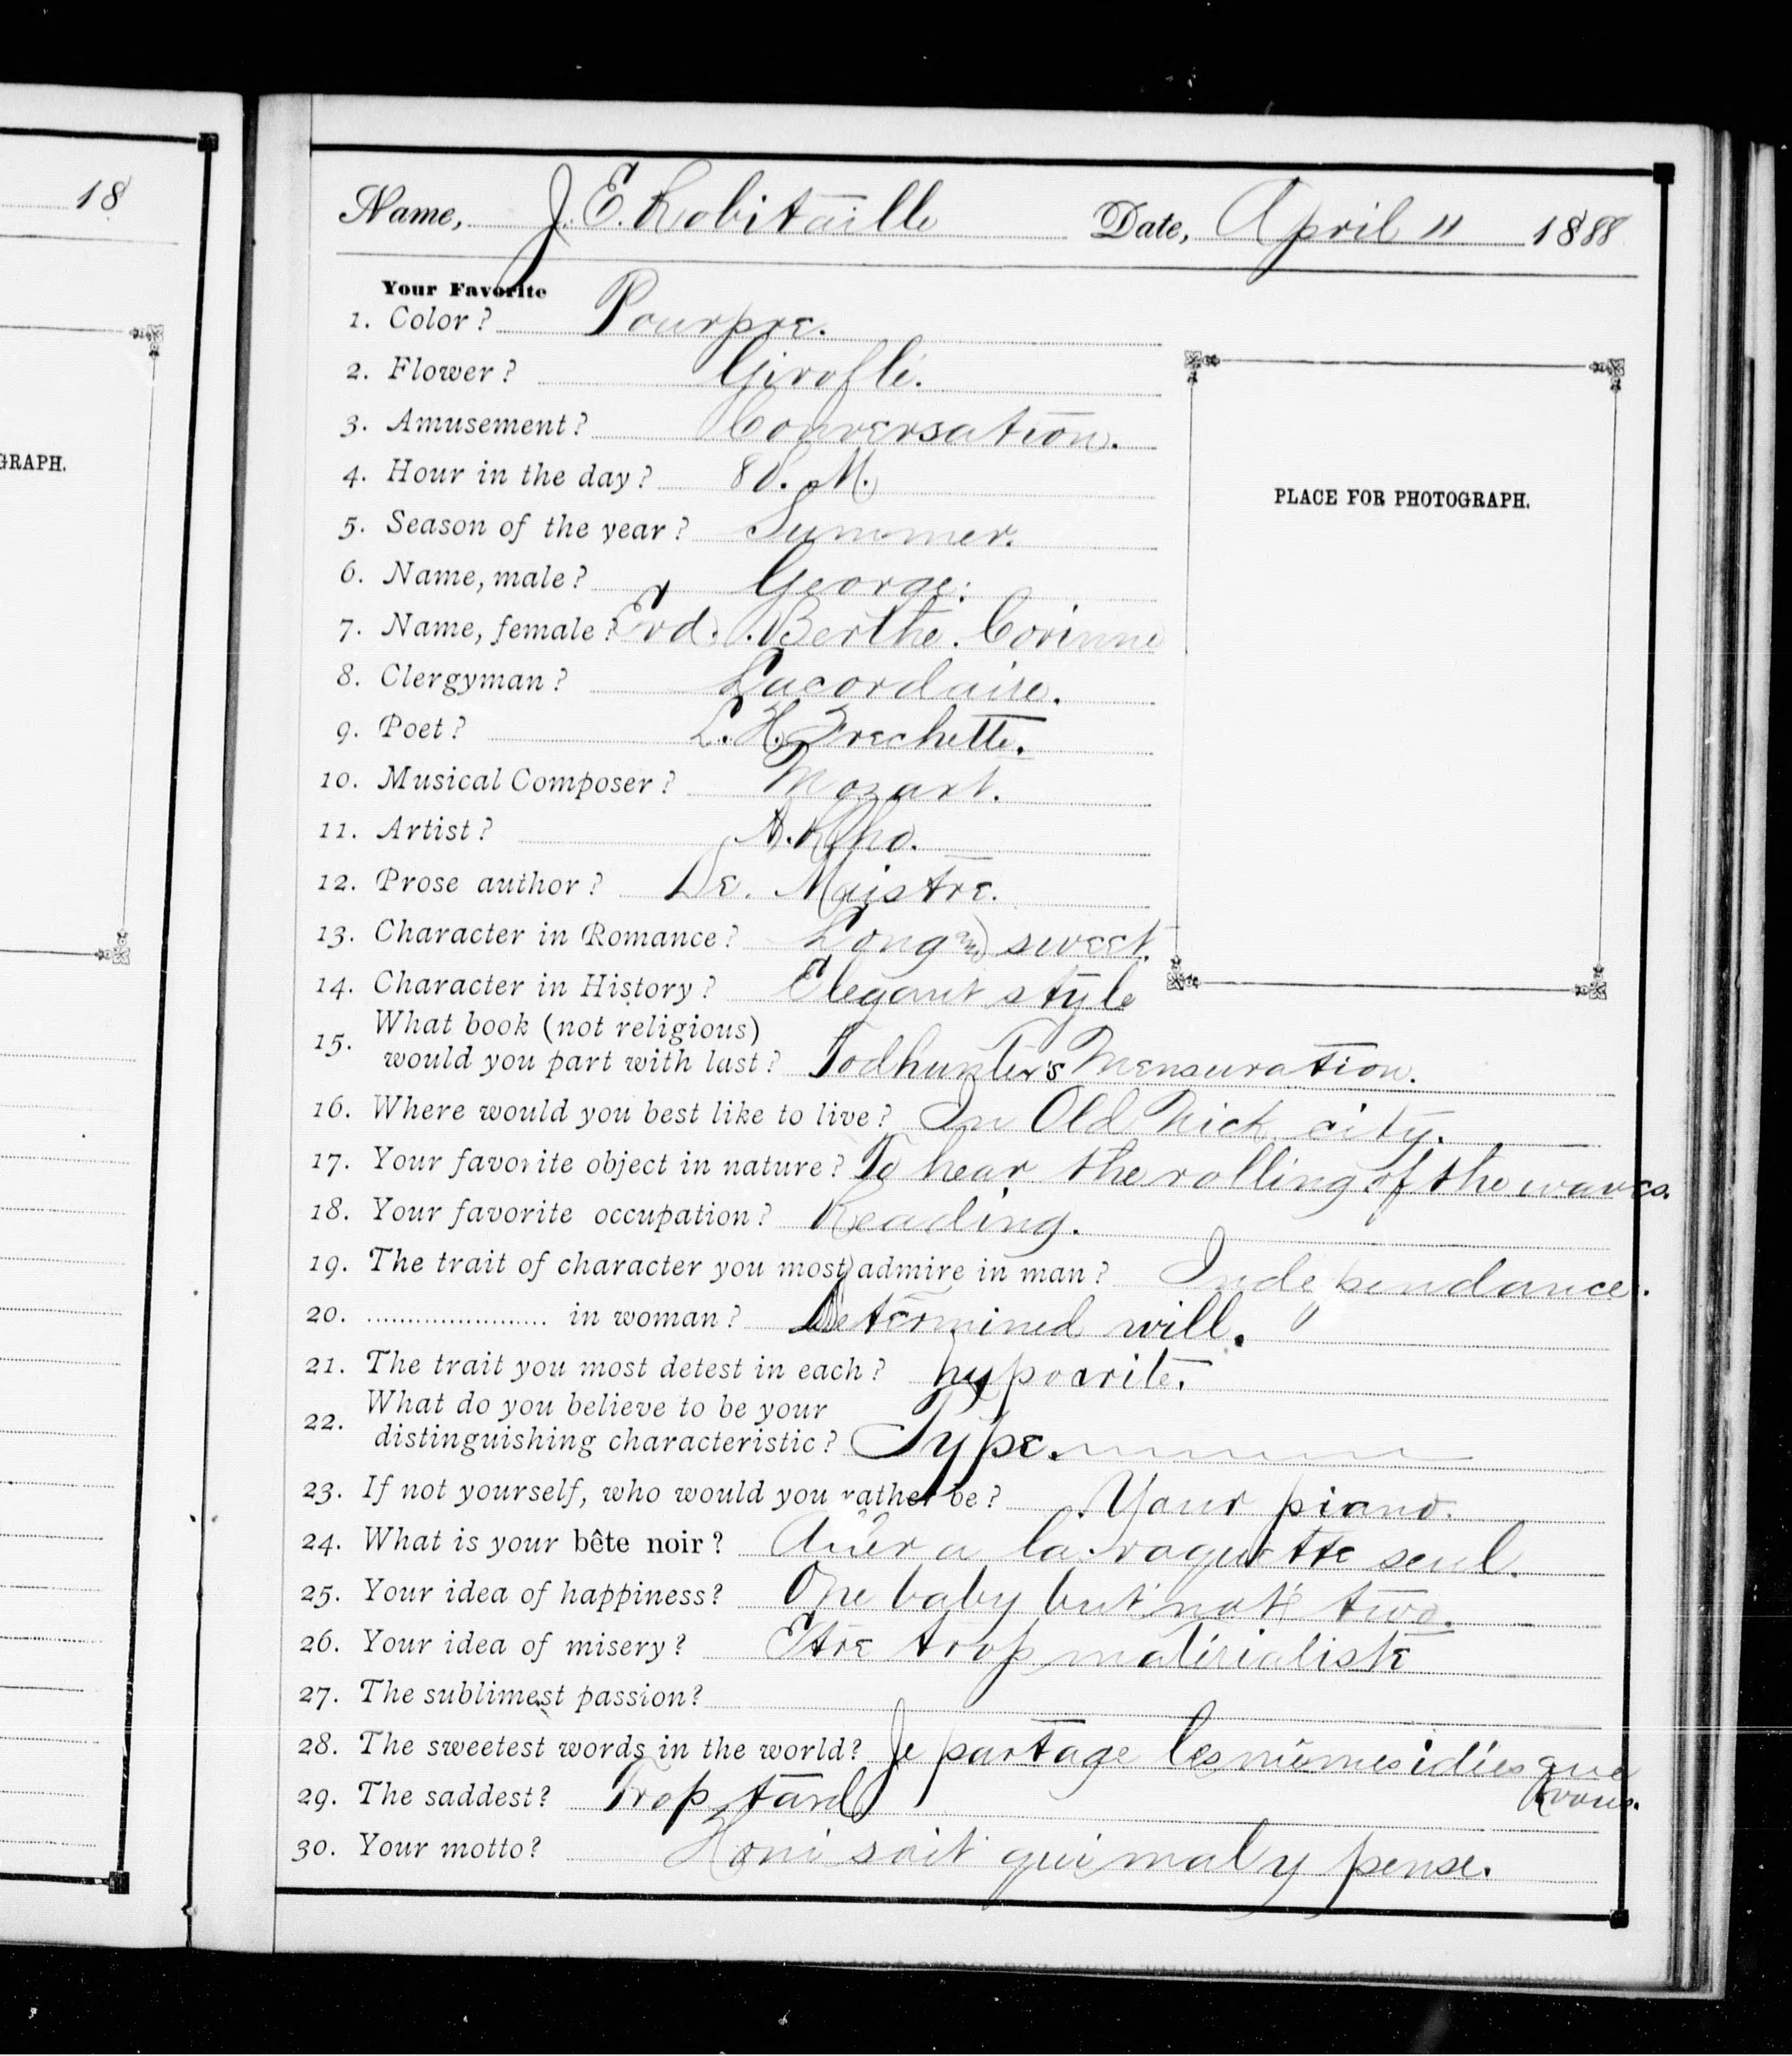 18
GRAPH.
Name, J. E. Robitaille Date, April 11 1888
Your Favorite
1. Color? Pourpre.
2. Flower? Giroflé.
3. Amusement? Conversation.
4. Hour in the day? 8 P. M.
5. Season of the year? Summer.
6. Name, male? George.
7. Name, female? Berthe. Corinne
8. Clergyman? Lacordaire.
9. Poet? L. H. Frechette.
10. Musical Composer? Mozart.
11. Artist? A. Rho.
12. Prose author? De. Maistre.
13. Character in Romance? Long and sweet.
14. Character in History? Elegant style
15. What book (not religious)
would you part with last? Todhunter's Mensuration.
16. Where would you best like to live? In Old Nick city.
17. Your favorite object in nature? To hear the rolling of the waves.
18. Your favorite occupation? Reading.
19. The trait of character you most admire in man? Independance.
20. in woman? Determined will. "
21. The trait you most detest in each? hypocrite.
22. What do you believe to be your
distinguishing characteristic? Type.
23. If not yourself, who would you rather be? Your piano.
24. What is your bête noir? a la raquette seul.
25. Your idea of happiness? One baby but not two.
26. Your idea of misery? Etre trop matérialiste
27. The sublimest passion?
28. The sweetest words in the world? Je partage les mêmes idées que
vous.
29. The saddest? Trop tard
30. Your motto? Honi soit qui mal y pense.
PLACE FOR PHOTOGRAPH.